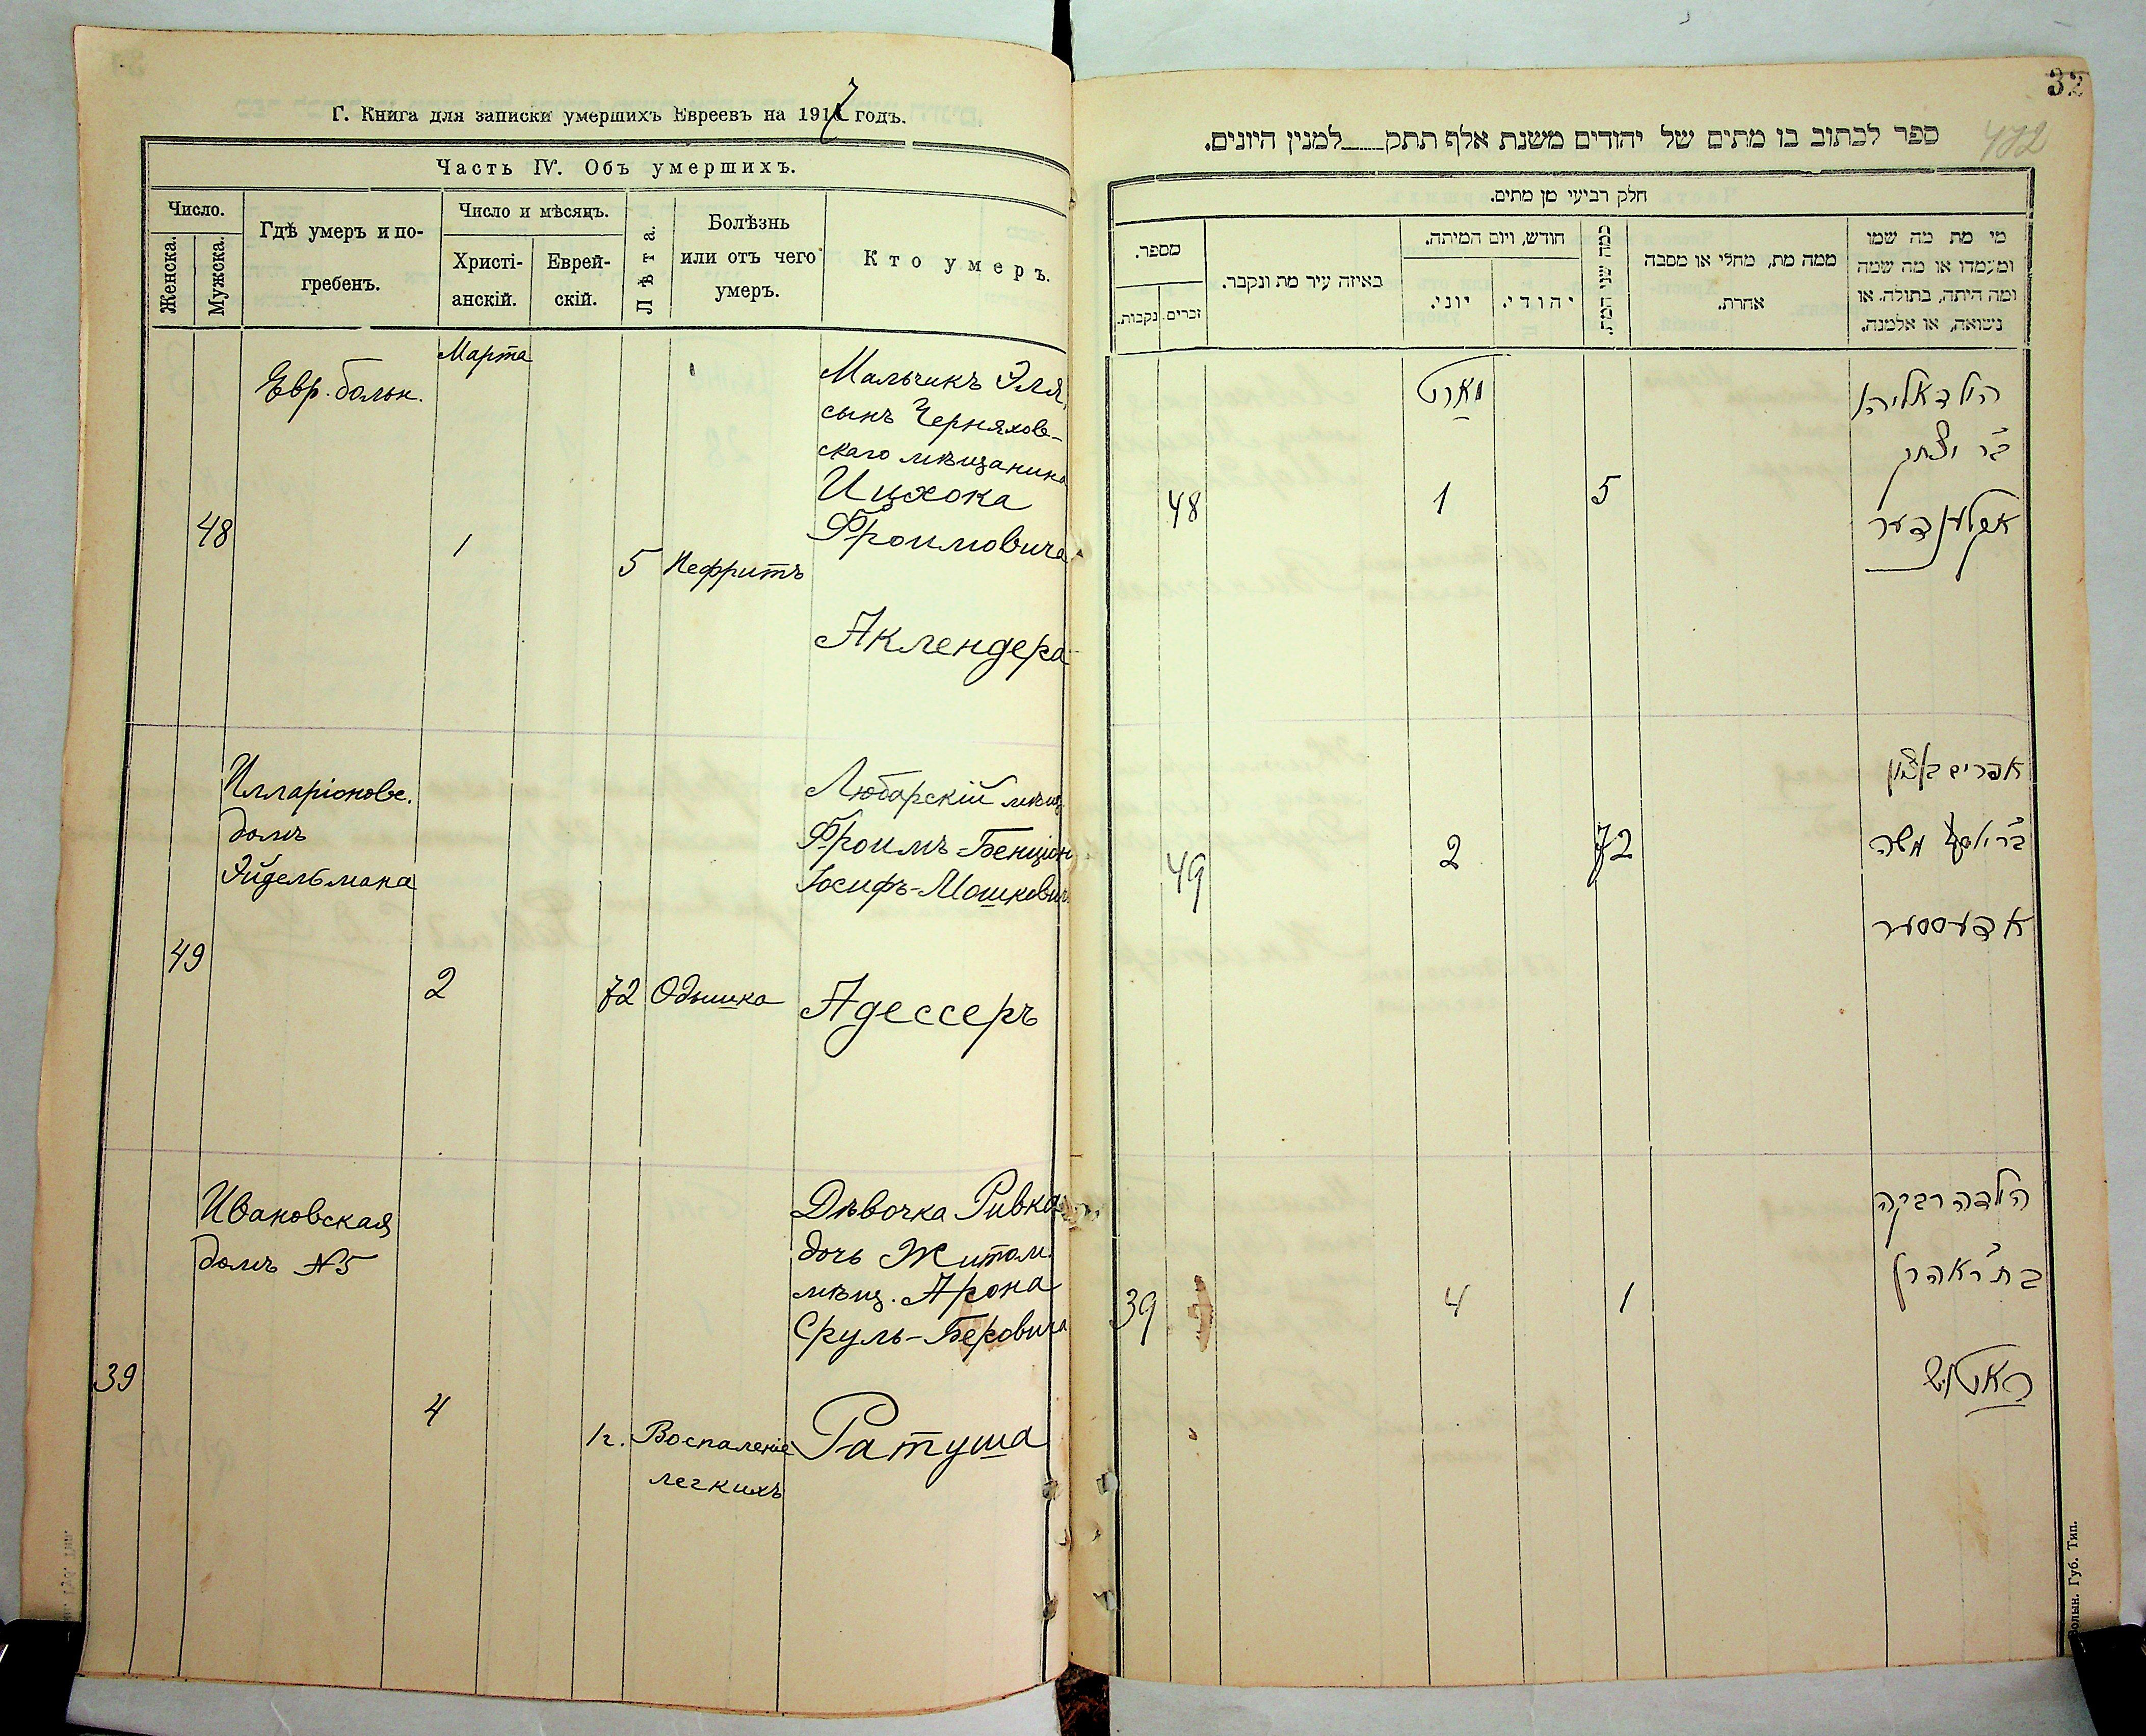 Г. Книга для записки умершихъ Евреевъ на 1917 годъ.
Часть IV. Объ умершихъ.
Число.
Женска.
Мужска.
Гдѣ умеръ и по-
гребенъ.
Число и мѣсяцъ.
Христі-
анскій.
Еврей-
скій.
Лѣта.
Болѣзнь
или отъ чего
умеръ.
Кто умеръ.
Марта
48
Евр. больн.
1
5
Нефритъ
Мальчикъ Эля,
сынъ Черняхов-
скаго мѣщанина
Ицхока
Фроимовича
Аклендера
49
Илларіоновс.
домъ
Эйдельмана
2
72
Одышка
Любарскій мѣщ.
Фроимъ-Бенціон
Іосифъ-Мошкович
Адессеръ
39
Ивановская
домъ №5
4
1г.
Воспаленіе
легкихъ
Дѣвочка Ривка
дочь Житом.
мѣщ. Арона
Сруль-Беровича
Ратуша
32
472
ספר לכתוב בו מתים של יהודים משנת אלף תתק___למנין היונים.
חלק רביעי מן מתים.
מספר.
נקבות.
זכרים.
באיזה עיר מת ונקבר.
חודש, ויום המיתה.
יוני.
יהודי.
כמה שני המת.
ממה מת, מחלי או מסבה
אחרת.
מי מת מה שמו
ומעמדו או מה שמה
ומה היתה, בתולה. או
נשואה, או אלמנה.
מארט
48
1
5
הילד אליהו
ב״ר יצחק
אקלענדער
49
2
72
אפרים בן ציון
ב״ר יוסף משה
אדעססער
39
4
1
הילדה רבקה
בת ר׳ אהרן
ראטוש
Волын. Губ. Тип.